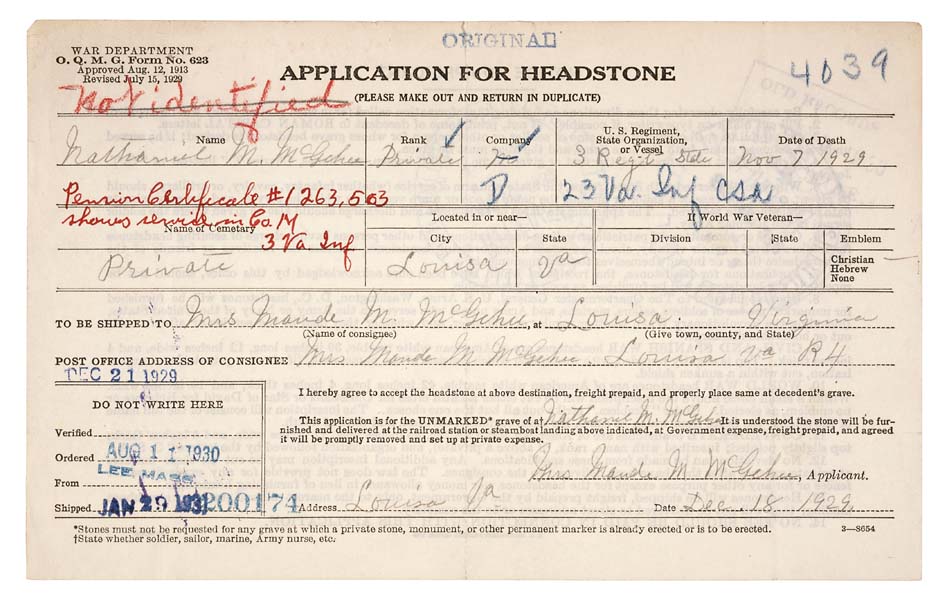 ORIGINAL
WAR DEPARTMENT
O. Q. M. G. Form No. 623
Approved Aug. 12, 1913
Revised July 15, 1929
APPLICATION FOR HEADSTONE
4039
Not identified
(PLEASE MAKE OUT AND RETURN IN DUPLICATE)
Name Rank Company U. S. Regiment, State Organization, or Vessel Date of Death
Nathaniel M. McGehee Private 3 Regt State Nov 7 1929
Pension Certificate #1263,503 D 23 Va. Inf CSA.
shows service in Co. M
3 Va. Inf
Name of Cemetary Located in or near— If World War Veteran—
City State Division ‡State Emblem
Private Louisa Va Christian
Hebrew
None
TO BE SHIPPED TO Mrs Maude M. McGehee, at Louisa. Virginia
(Name of consignee) (Give town, county, and State)
POST OFFICE ADDRESS OF CONSIGNEE Mrs Maude M McGehee, Louisa Va R4
DEC 21 1929
I hereby agree to accept the headstone at above destination, freight prepaid, and properly place same at decedent's grave.
DO NOT WRITE HERE
This application is for the UNMARKED* grave of at Nathaniel M. McGehee It is understood the stone will be fur-
nished and delivered at the railroad station or steamboat landing above indicated, at Government expense, freight prepaid, and agreed
it will be promptly removed and set up at private expense.
Verified
Ordered AUG 11 1930
LEE MASS.
From
Mrs Maude M McGehee, Applicant.
Shipped JAN 29 1931 200174 Address Louisa Va. Date Dec. 18, 1929
*Stones must not be requested for any grave at which a private stone, monument, or other permanent marker is already erected or is to be erected. 3—8654
†State whether soldier, sailor, marine, Army nurse, etc.